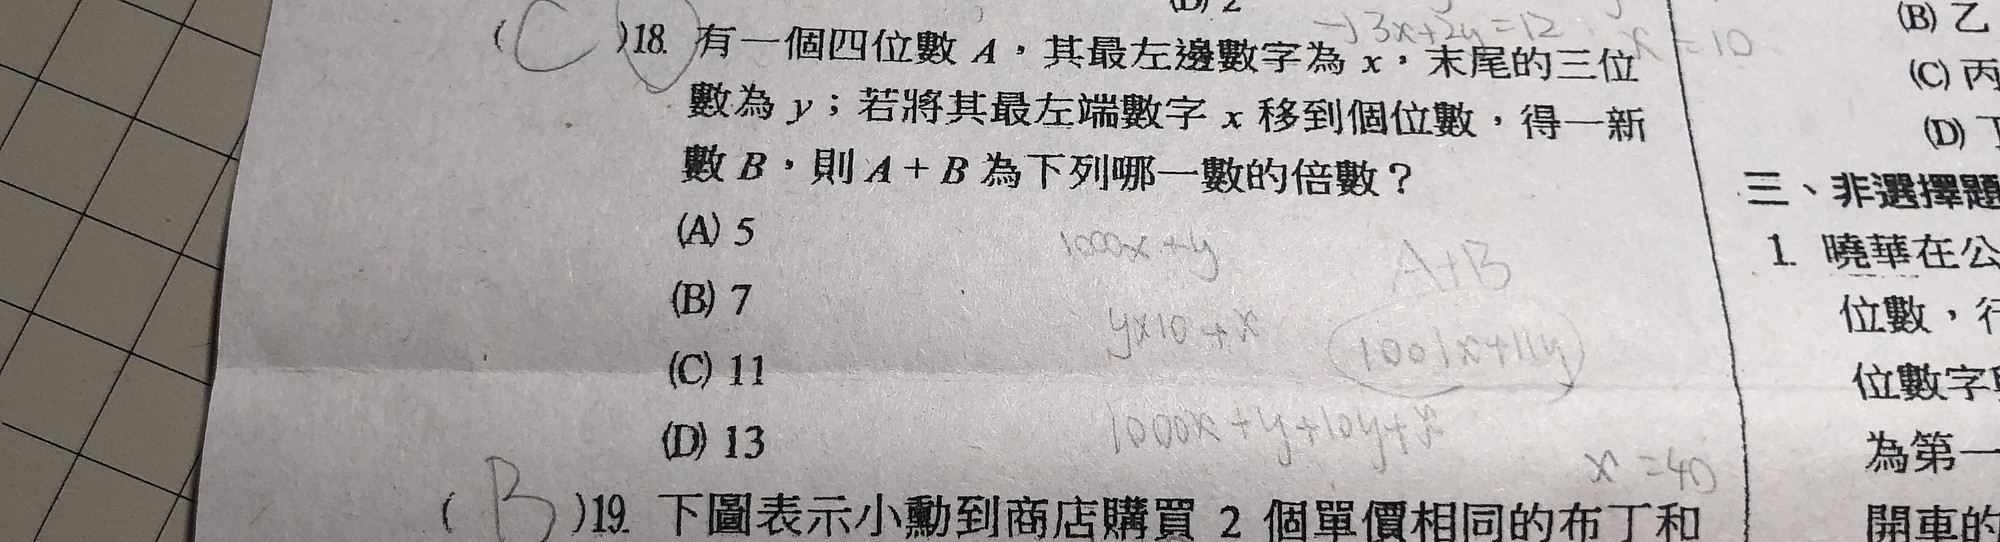 (D) 2
→ 3x+2y=12
x=10
( C )18. 有一個四位數 A，其最左邊數字為 x，末尾的三位
數為 y；若將其最左端數字 x 移到個位數，得一新
數 B，則 A + B 為下列哪一數的倍數？
(A) 5
(B) 7
(C) 11
(D) 13
1000x+y
A+B
y×10+x
1001x+11y
1000x+y+10y+x
x=40
( B )19. 下圖表示小勳到商店購買 2 個單價相同的布丁和
(B) 乙
(C) 丙
(D)
三、非選擇題
1. 曉華在公
位數，行
位數字
為第一
開車的